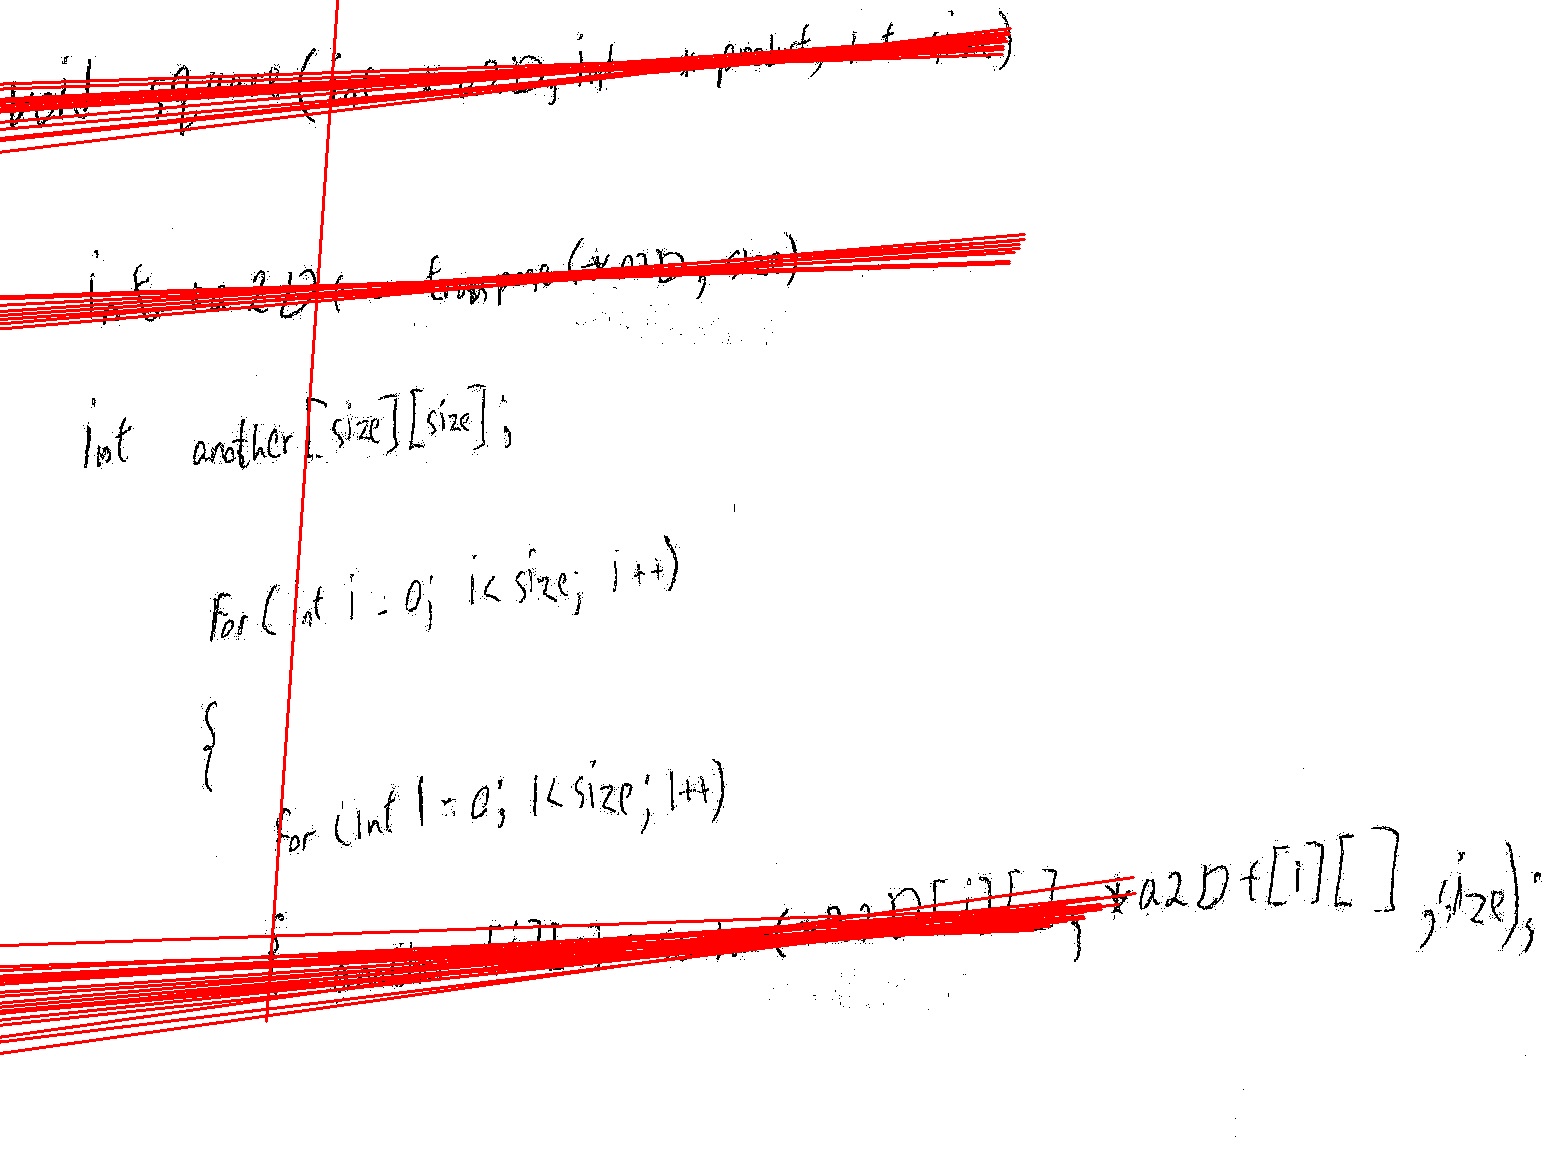 void square(int * a2D, int * product, int size)
int 2D transpose(*a2D, size)
int another[size][size];
For(int i = 0; i< size; i++)
{
for (int l = 0; l< size; l++)
(*a2D[i][], *a2Dt[i][] ,size);